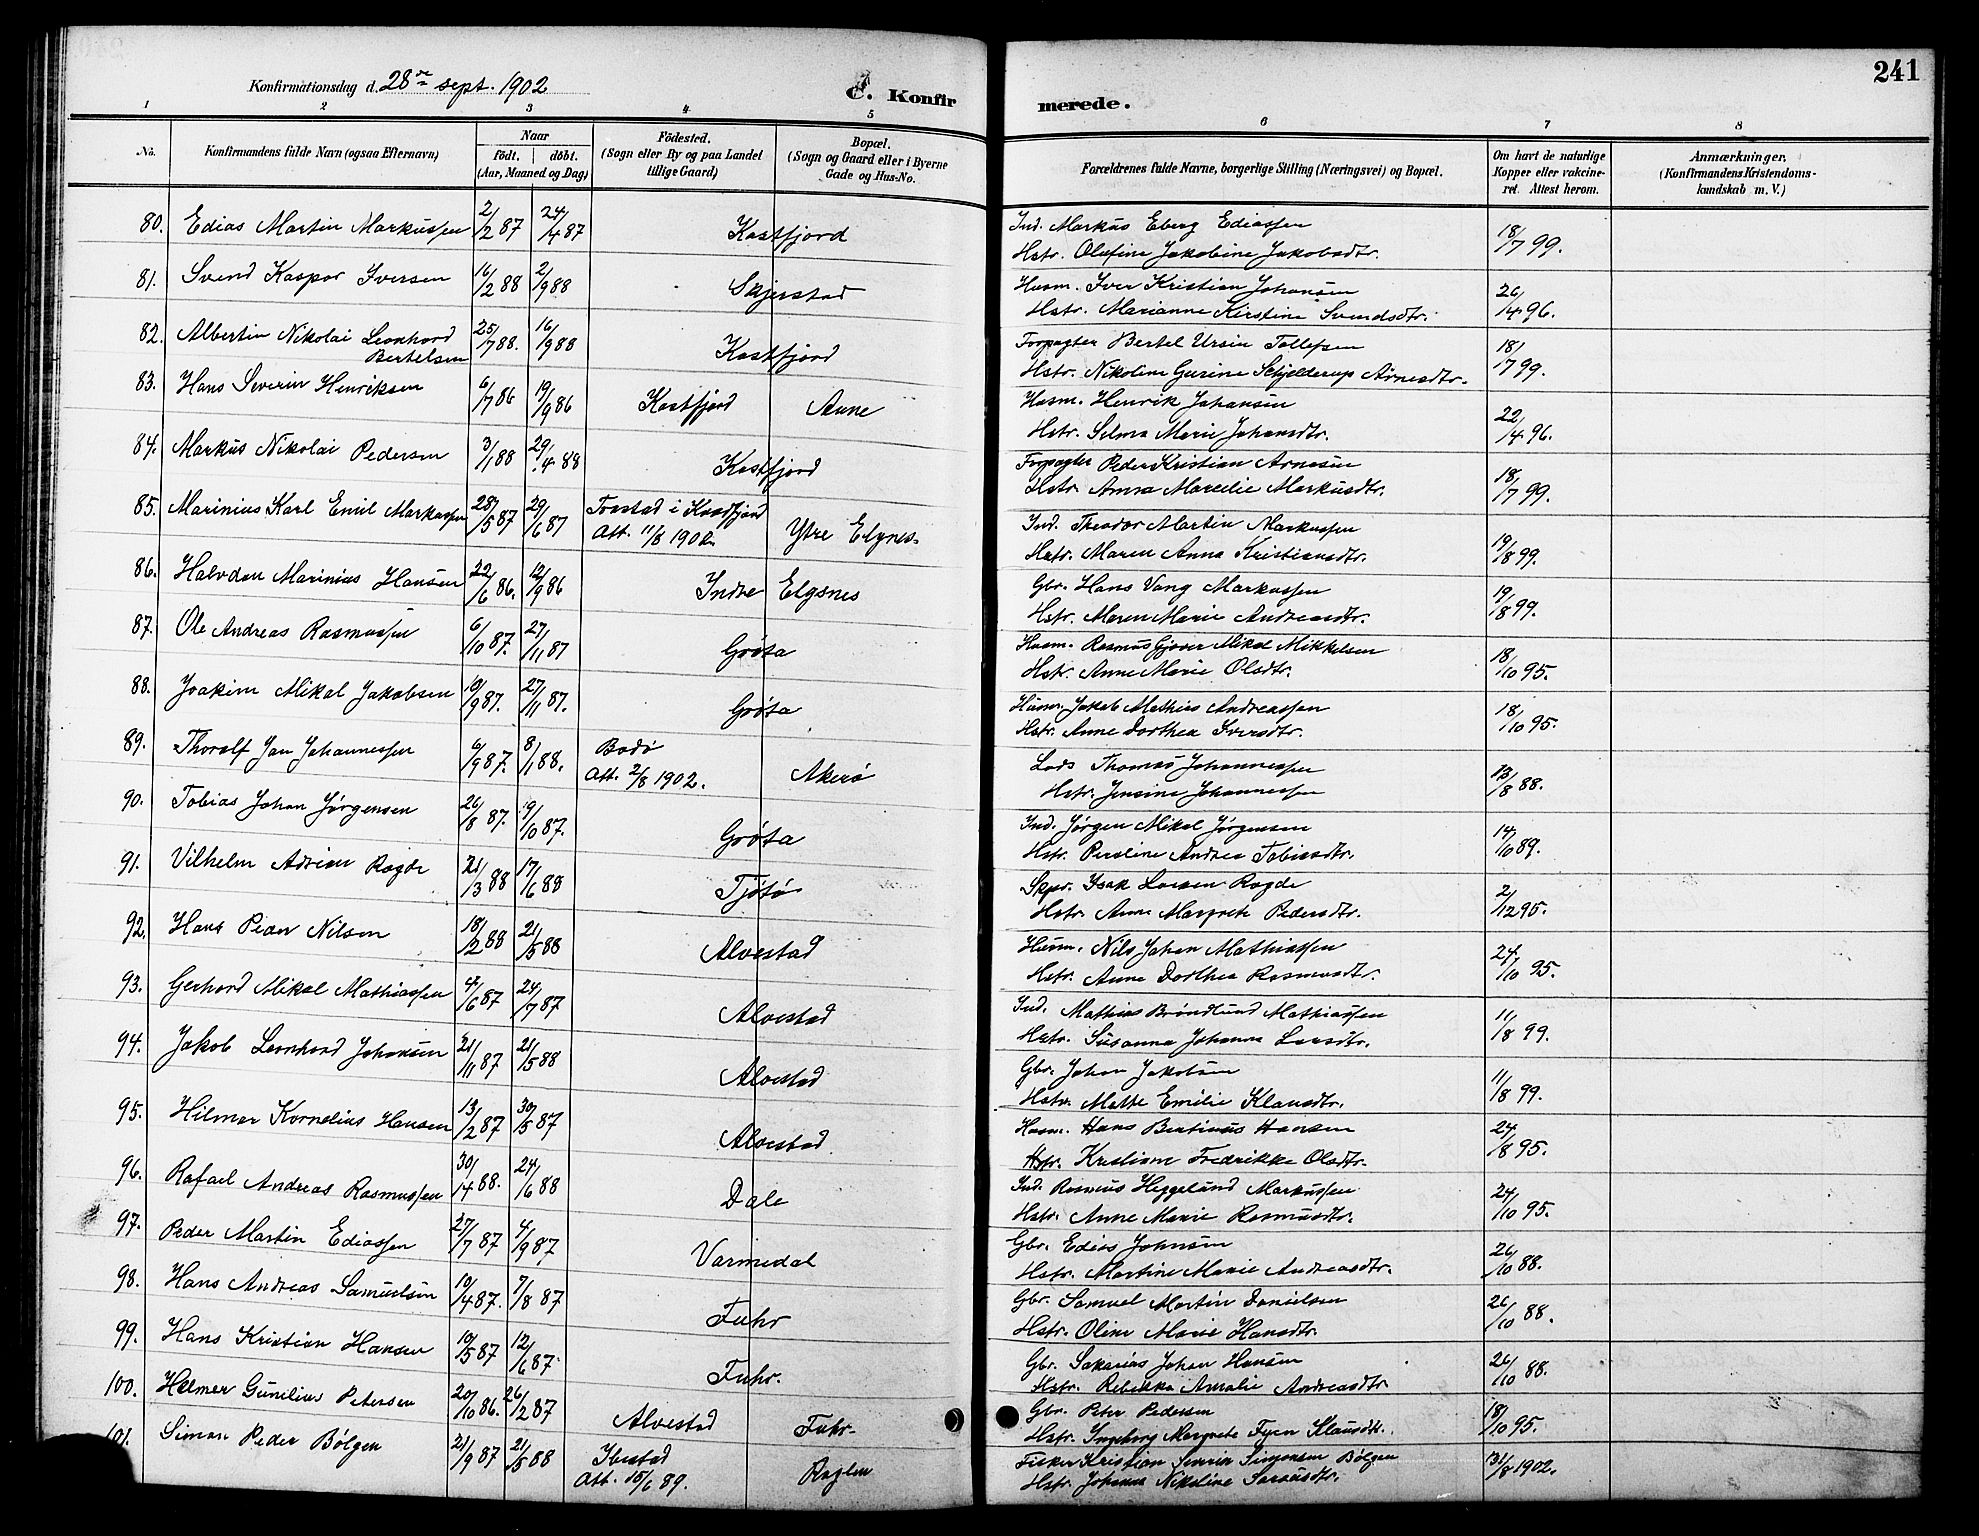 241
Konfirmationsdag d. 28de sept. 1902
C. Konfirmerede.
1 2 3 4 5 6 7 8
No.
Konfirmandens fulde Navn (ogsaa Efternavn)
Naar
födt. döbt.
(Aar, Maaned og Dag)
Födested.
(Sogn eller By og paa Landet
tillige Gaard)
Bopæl.
(Sogn og Gaard eller i Byerne
Gade og Hus-No.
Forældrenes fulde Navne, borgerlige Stilling (Næringsvei) og Bopæl.
Om havt de naturlige
Kopper eller vakcine-
ret. Attest herom.
Anmærkninger.
(Konfirmandens Kristendoms-
kundskab m. V.)
80. Edias Martin Markussen 2/2 87 24/4 87 Kastfjord Ind. Markus Eberg Ediassen 18/7 99.
Hstr. Olufine Jakobine Jakobsdtr.
81. Svend Kaspar Iversen 16/2 88 2/9 88 Skjerstad Husm. Iver Kristian Johansen 26/4 96.
Hstr. Marianne Kirstine Svendsdtr.
82. Albertin Nikolai Leonhard 25/7 88. 16/9 88 Kastfjord Forpagter Bertel Ursin Tollefsen 18/7 99.
Bertelsen Hstr. Nikoline Gurine Schjelderup Arnesdtr.
83. Hans Severin Henriksen 6/7 86 19/9 86 Kastfjord Aune Husm. Henrik Johansen 22/4 96.
Hstr. Selma Marie Johansdtr.
84. Markus Nikolai Pedersen 3/1 88 29/4 88 Kastfjord Forpagter Peder Kristian Arnesen 18/7 99.
Hstr. Anna Marcelie Markusdtr.
85. Marinius Karl Emil Markussen 28/5 87 29/6 87 Trastad i Kvæfjord Ytre Elgnes. Ind. Theodor Martin Markussen 19/8 99.
Att. 11/8 1902. Hstr. Maren Anna Kristiansdtr.
86. Halvdan Marinius Hansen 22/6 86. 12/9 86 Indre Elgsnes Gbr. Hans Vang Markussen 19/8 99.
Hstr. Maren Marie Andreasdtr.
87. Ole Andreas Rasmussen 6/10 87. 27/11 87 Grøta Husm. Rasmus Gjøver Mikal Mikkelsen 18/10 95.
Hstr. Anne Marie Olsdtr.
88. Joakim Mikal Jakobsen 10/9 87. 27/11 87. Grøta Husm. Jakob Mathias Andreassen 18/10 95.
Hstr. Anne Dorthea Iversdtr.
89. Thoralf Jan Johannessen 6/9 87. 8/1 88. Bodø Akerø Lods Thomas Johannessen 13/8 88.
Att. 2/8 1902. Hstr. Jensine Johannessen
90. Tobias Johan Jørgensen 26/8 87. 19/10 87. Grøta Ind. Jørgen Mikal Jørgensen 14/10 89.
Hstr. Peroline Andrea Tobiasdtr.
91. Vilhelm Adrian Ragde 21/3 88 17/6 88 Tjøtø Skpr. Isak Larsen Ragde 2/12 95.
Hstr. Anne Margrete Pedersdtr.
92. Hans Peder Nilsen 18/2 88 21/5 88 Alvestad Husm. Nils Johan Mathiassen 24/10 95.
Hstr. Anne Dorthea Rasmusdtr.
93. Gerhard Mikal Mathiassen 4/6 87 24/7 87 Alvestad Ind. Mathias Brøndlund Mathiassen 11/8 99.
Hstr. Susanna Johanna Larsdtr.
94. Jakob Leonhard Johansen 21/11 87 21/5 88 Alvestad Gbr. Johan Jakobsen 11/8 99.
Hstr. Mette Emilie Klausdtr.
95. Hilmar Kornelius Hansen 13/2 87 30/5 87 Alvestad Husm. Hans Bertinus Hansen 24/8 95.
Hstr. Kristiane Fredrikke Olsdtr.
96. Rafael Andreas Rasmussen 30/14 88. 24/6 88 Dale Ind. Rasmus Heggelund Markussen 24/10 95.
Hstr. Anne Marie Rasmusdtr.
97. Peder Martin Ediassen 27/7 87 4/9 87 Varmedal Gbr. Edias Johnsen 26/10 88.
Hstr. Martine Marie Andreasdtr.
98. Hans Andreas Samuelsen 10/4 87. 7/8 87 Fuhr Gbr. Samuel Martin Danielsen 26/10 88.
Hstr. Oline Marie Hansdtr.
99. Hans Kristian Hansen 10/5 87 12/6 87. Fuhr. Gbr. Sakarias Johan Hansen 26/10 88.
Hstr. Rebekka Amalie Andreasdtr
100. Helmer Gunelius Petersen 20/10 86. 26/12 87 Alvestad Fuhr. Gbr. Peter Pedersen 18/10 95.
Hstr. Ingeborg Margrete Fyen Klausdtr.
101. Simon Peder Bølgen 21/9 87 21/5 88 Ibestad Roglen Fisker Kristian Severin Simonsen Bølgen 31/8 1902.
Att. 15/6 89. Hstr. Johanna Nikoline Sørensdtr.